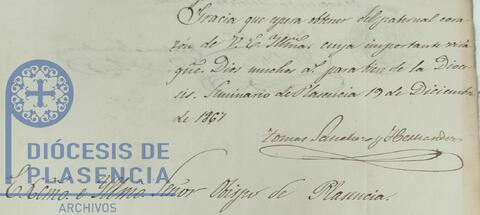 Gracia que espera obtener del paternal cora-
zón de V. E. Illma. cuya importante vida
gue. Dios muchos as. para bien de la Dioce-
sis. Seminario de Plasencia 19 de Diciembre
de 1867
Tomas Sanchez y Hernandez
DIÓCESIS DE
PLASENCIA
ARCHIVOS
Excmo. e Illmo. Señor Obispo de Plasencia.